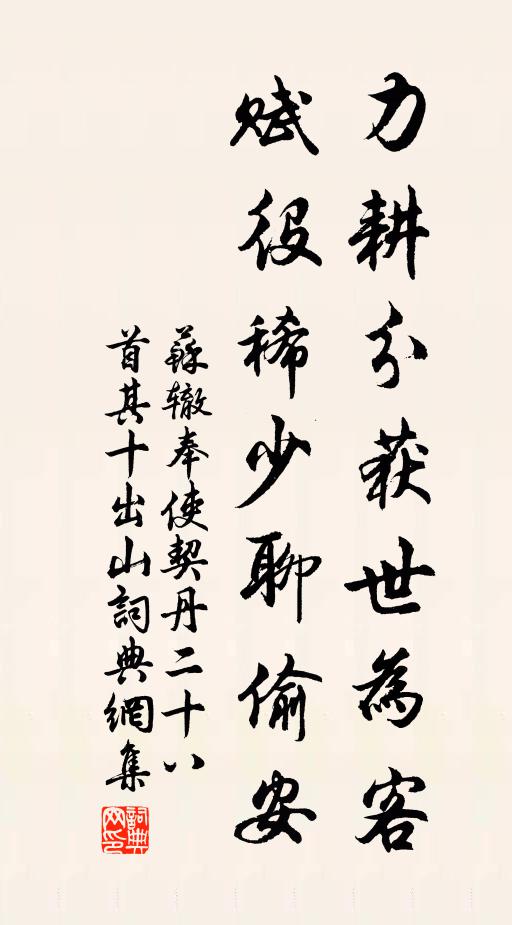 力耕分获世為客
赋役稀少聊偷安
蘇辙奉使契丹二十八
首其十出山詞典網集
詞典网印